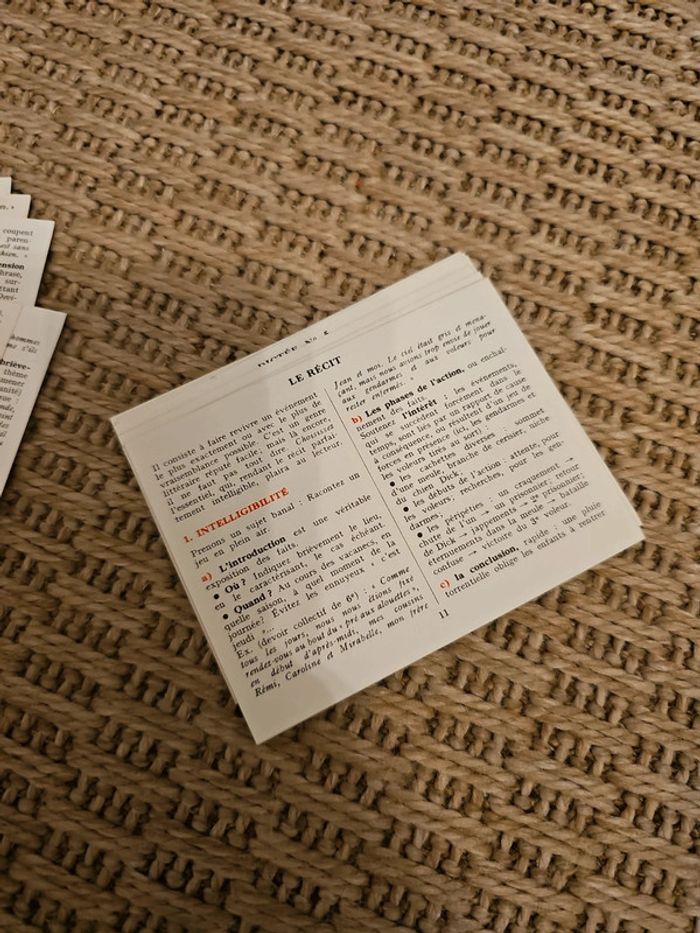 n. »
coupent
paren-
est sans
ension
hrase,
sur-
ttant
Devi-
hommes
me s'ils
briève-
thème
mener
anité)
rve :
onde,
dont
LE RÉCIT
Il consiste à faire revivre un événement
le plus exactement ou avec le plus de
vraisemblance possible. C'est un genre
littéraire réputé facile; mais là encore,
il ne faut pas tout dire. Choisissez
l'essentiel, qui, rendant le récit parfai-
tement intelligible, plaira au lecteur.
1. INTELLIGIBILITÉ
Prenons un sujet banal : Racontez un
jeu en plein air.
a) L'introduction est une véritable
exposition des faits.
• Où ? Indiquez brièvement le lieu,
en le caractérisant, le cas échéant.
• Quand ? Au cours des vacances, en
quelle saison, à quel moment de la
journée? Évitez les ennuyeux « c'est
jeudi »...
Ex. (devoir collectif de 6e) : « Comme
tous les jours, nous nous étions fixé
rendez-vous au bout du « pré aux alouettes »,
en début d'après-midi, mes cousins
Rémi, Caroline et Mirabelle, mon frère
Jean et moi. Le ciel était gris et mena-
çant, mais nous avions trop envie de jouer
aux gendarmes et aux voleurs pour
rester enfermés. »
b) Les phases de l'action, ou enchaî-
nement des faits.
Soutenez l'intérêt : les événements,
qui se succèdent forcément dans le
temps, sont liés par un rapport de cause
à conséquence, ou résultent d'un jeu de
forces en présence (ici, les gendarmes et
les voleurs tirés au sort) :
• les cachettes diverses : sommet
d'une meule, branche de cerisier, niche
du chien Dick.
• les débuts de l'action : attente, pour
les voleurs; recherches, pour les gen-
darmes;
• les péripéties : un craquement →
chute de l'un → un prisonnier; retour
de Dick → jappements → 2e prisonnier;
éternuements dans la meule → bataille
confuse → victoire du 3e voleur.
c) la conclusion, rapide : une pluie
torrentielle oblige les enfants à rentrer
11